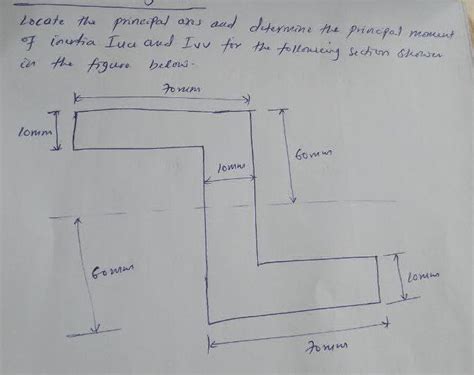 Locate the principal axis and determine the principal moment
of inertia Iuu and Ivv for the following section shown
in the figure below.
70mm
10mm
10mm
60mm
60mm
10mm
70mm